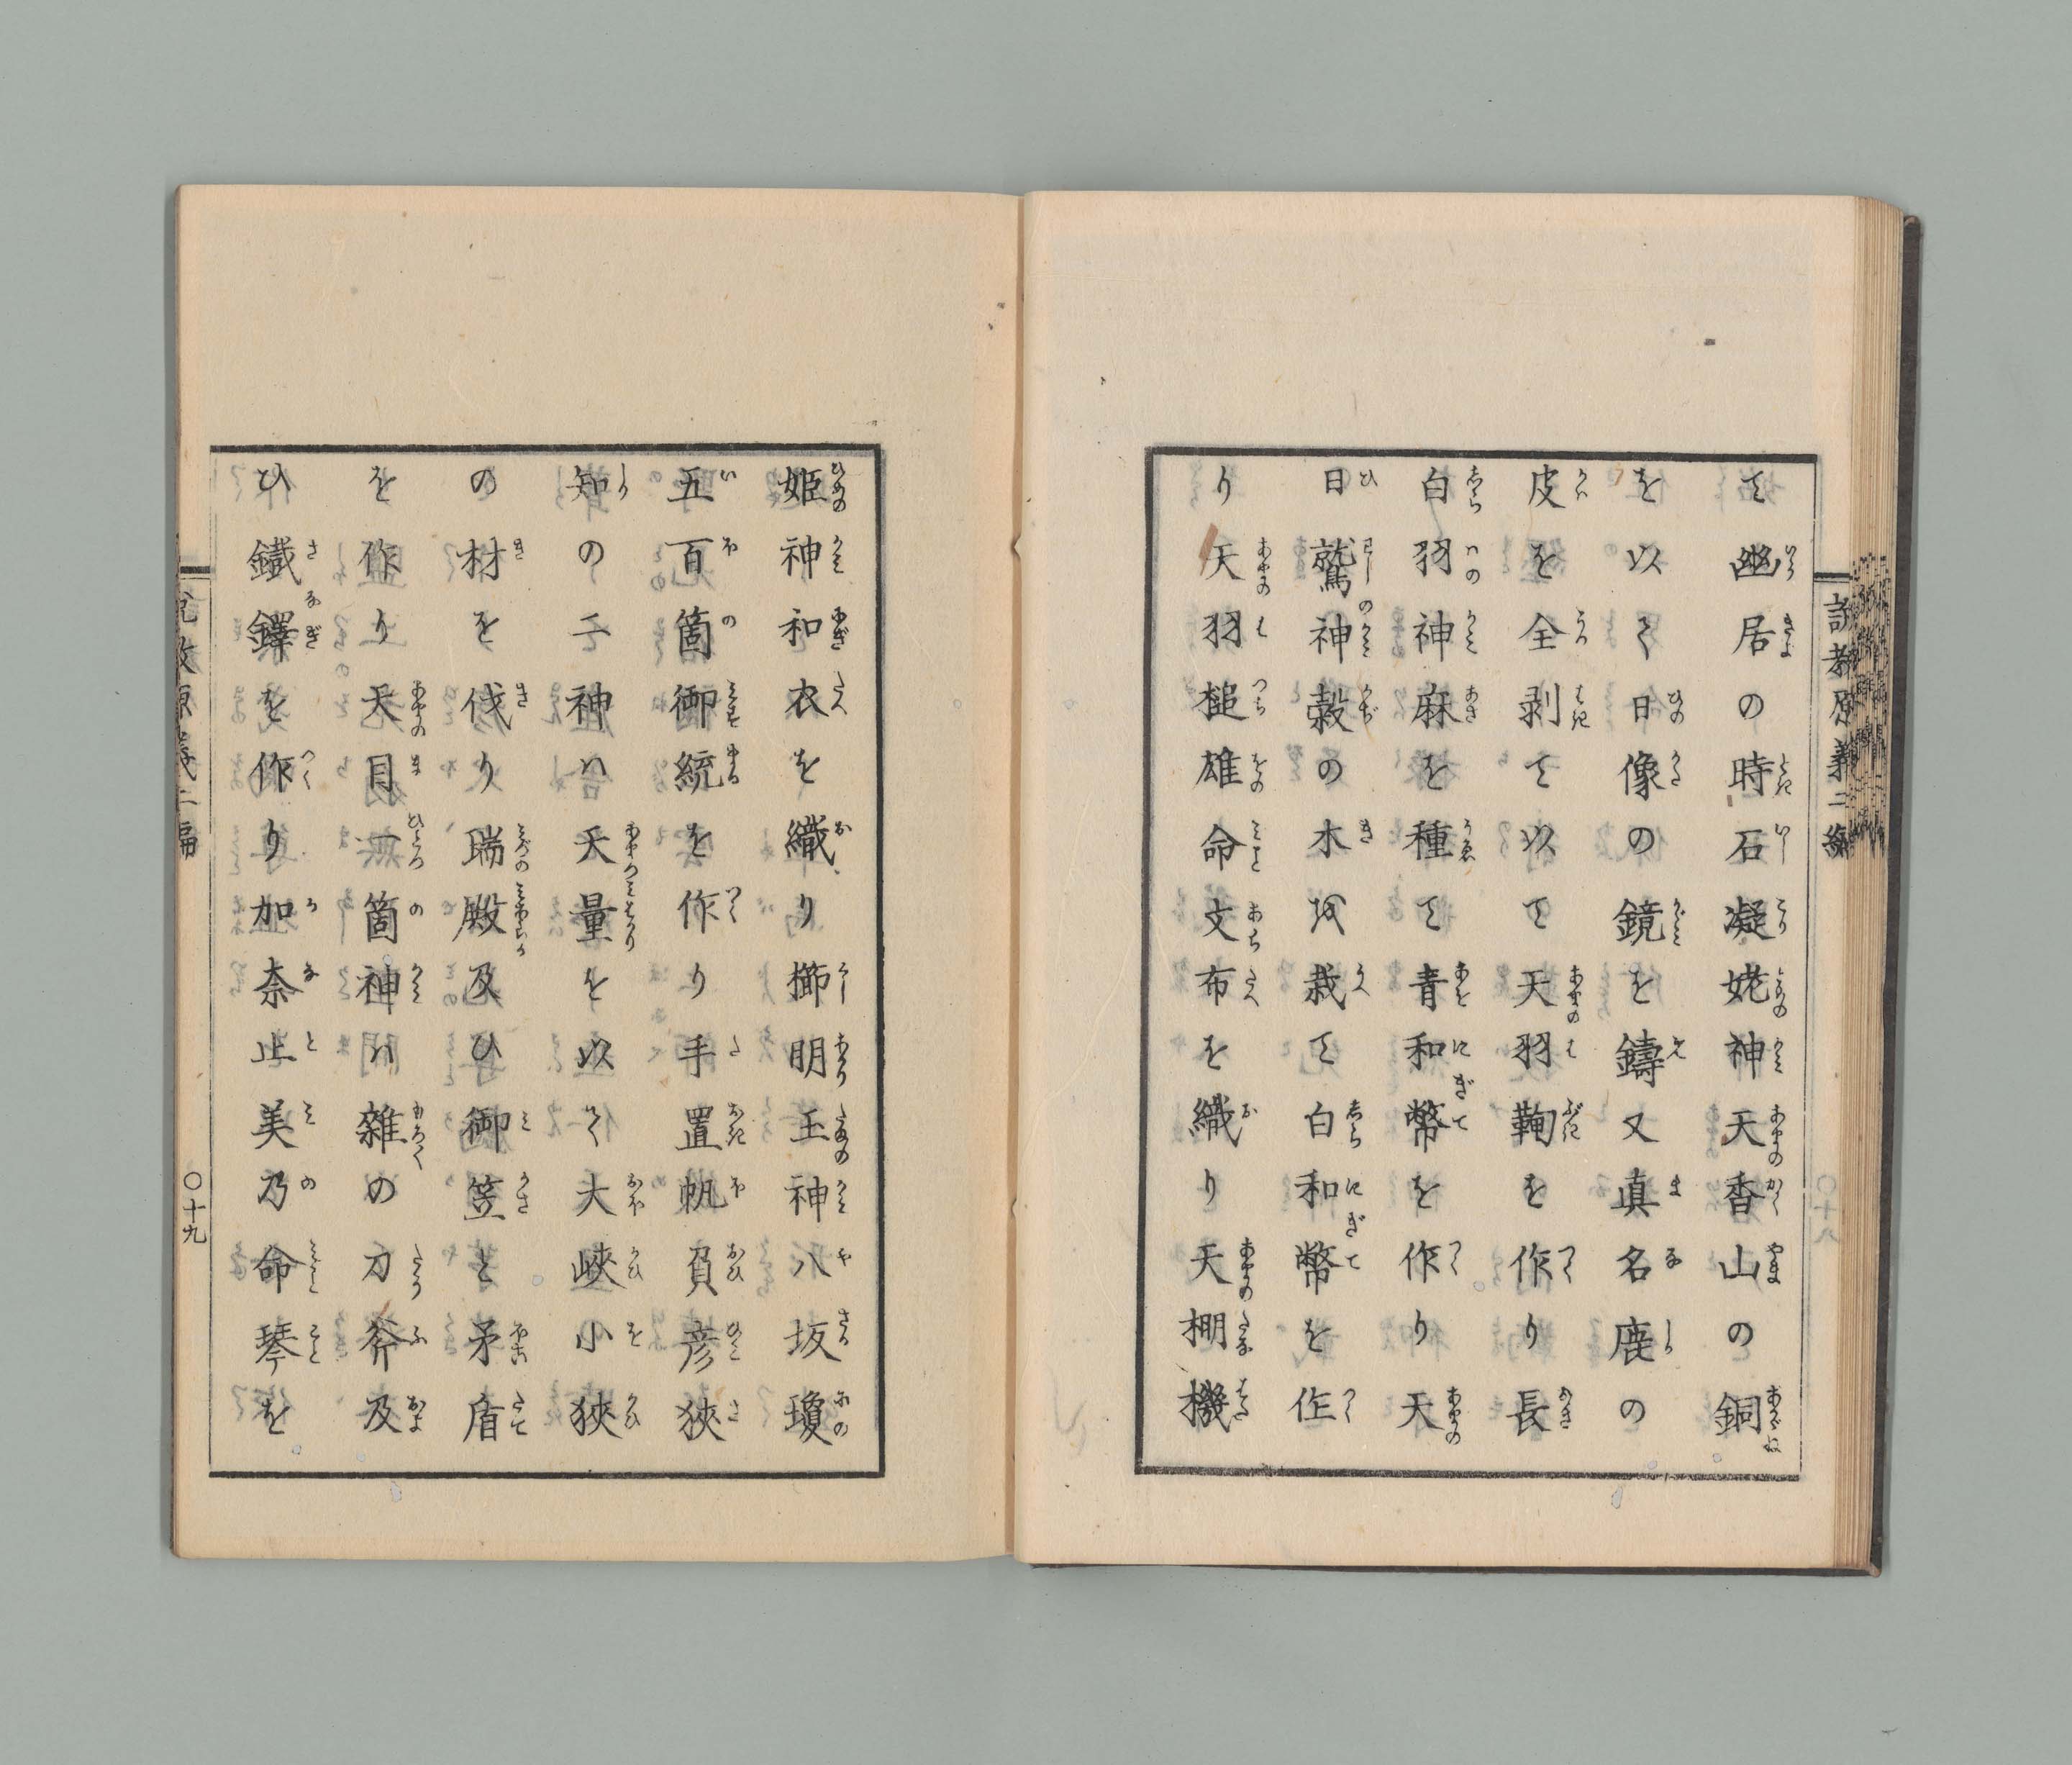 て幽居の時石凝姥神天香山の銅
を以て日像の鏡を鑄又真名鹿の
皮を全剥て以て天羽鞴を作り長
白羽神麻を種て青和幣を作り天
日鷲神榖の木を栽て白和幣を作
り天羽槌雄命文布を織り天棚機
姫神和衣を織り櫛明玉神八坂瓊
五百箇御統を作り手置帆負彦狹
知の二神ハ天量を以て大峽小狹
の材を伐り瑞殿及ひ御笠と矛盾
を作り天目一箇神ハ雜の刀斧及
ひ鐵鐸を作り加奈止美乃命琴を
説教原義二編
〇十九